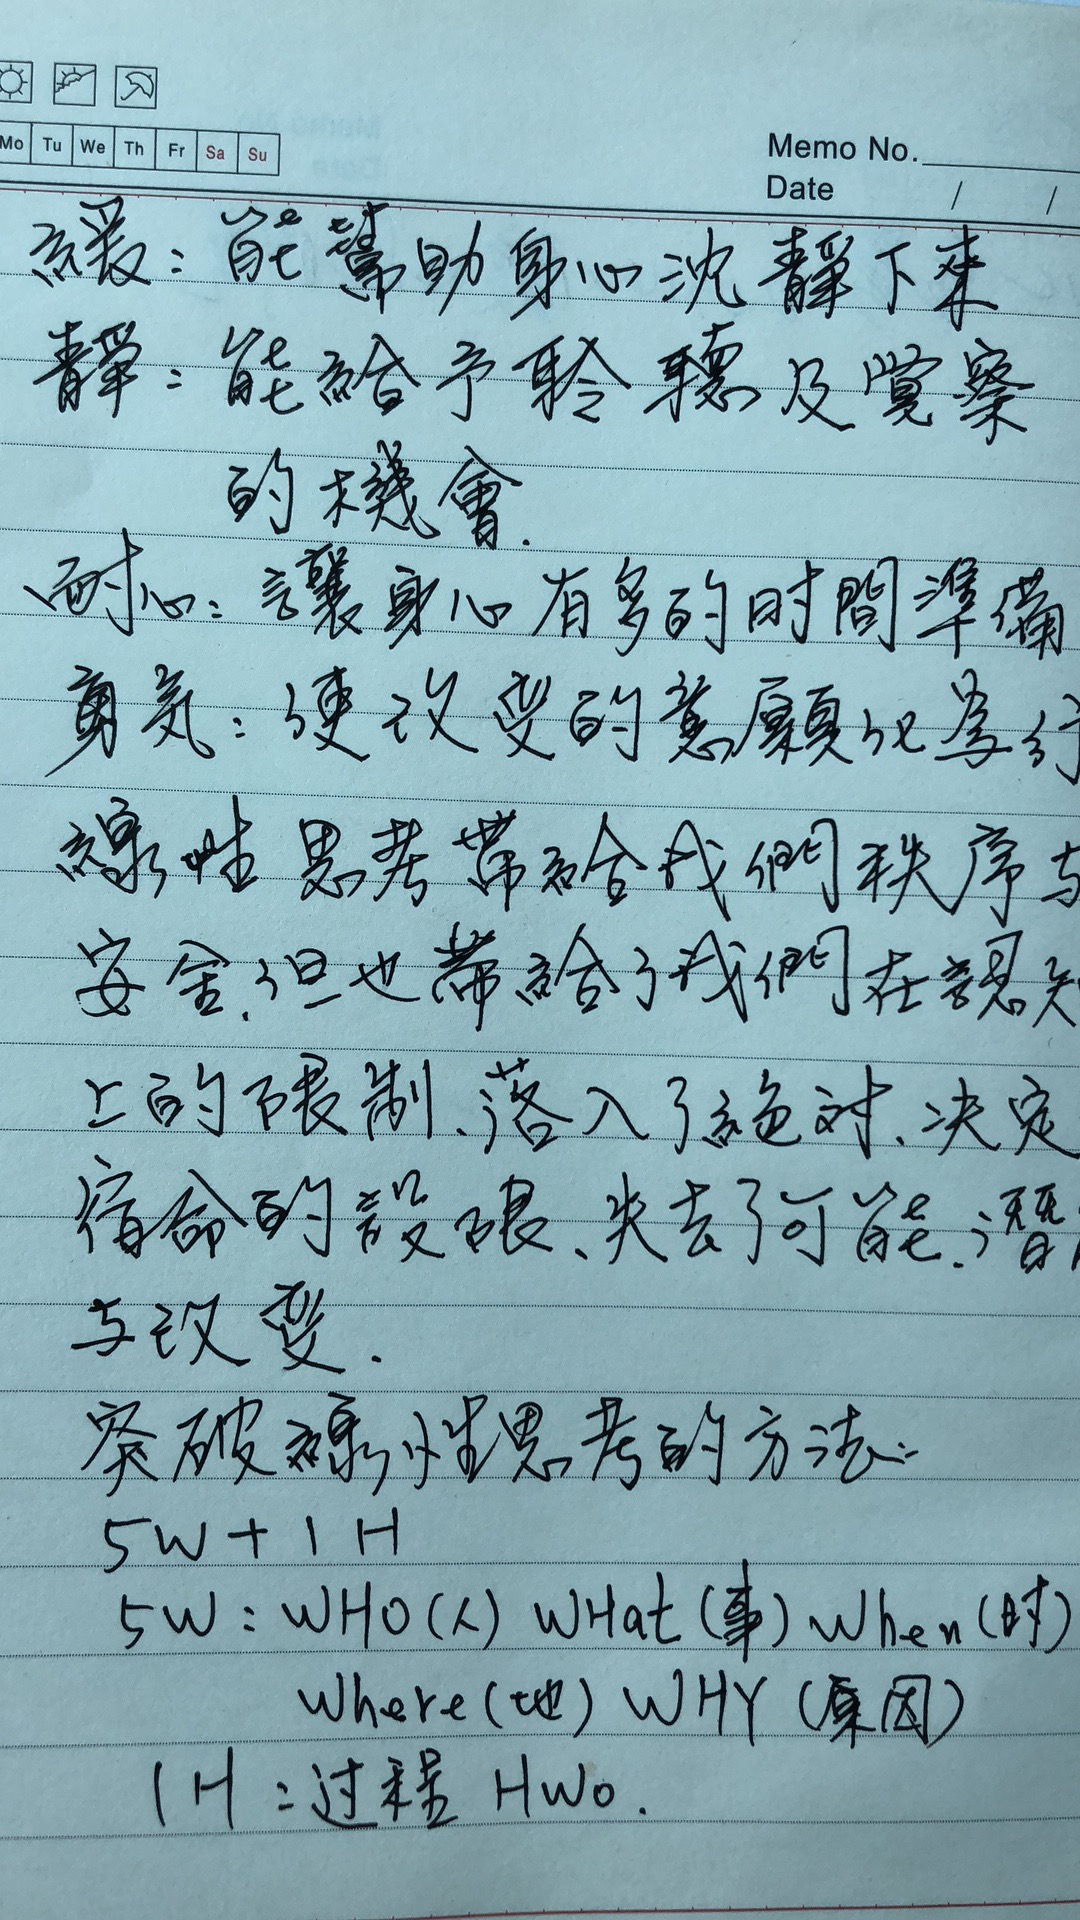 Mo Tu We Th Fr Sa Su
Memo No.
Date / /
緩：能幫助身心沈靜下來
靜：能給予聆聽及覺察
的機會.
耐心：讓身心有多的时間準備
勇氣：使改變的意願化為行
線性思考帶給我們秩序与
安全,但也帶給了我們在認知
上的限制、落入了絕对、决定
宿命的設限、失去了可能.潛
与改變.
突破線性思考的方法:
5W+1H
5W：WHO(人) WHat(事) When(时)
Where(地) WHY(原因)
1H：过程 HWo.